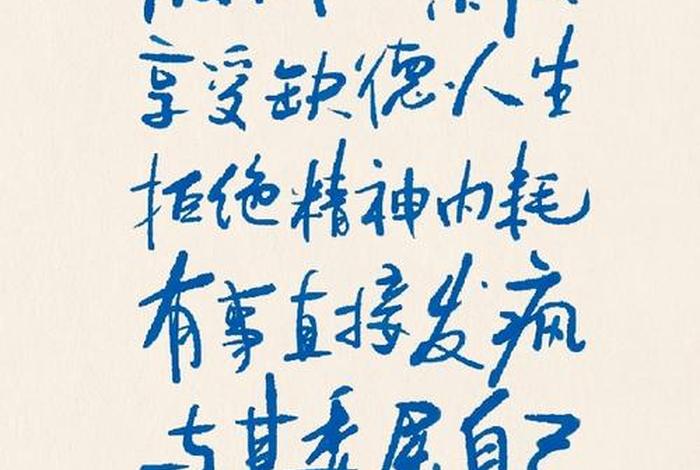 享受缺德人生
拒绝精神内耗
有事直接发疯
与其委屈自己